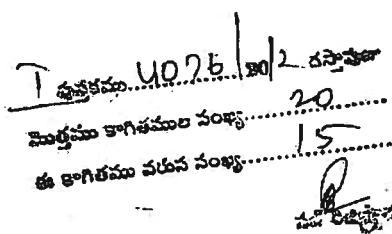 I పుస్తకము 4076/2012 దస్తావేజు
మొత్తము కాగితముల సంఖ్య 20
ఈ కాగితము వరుస సంఖ్య 15